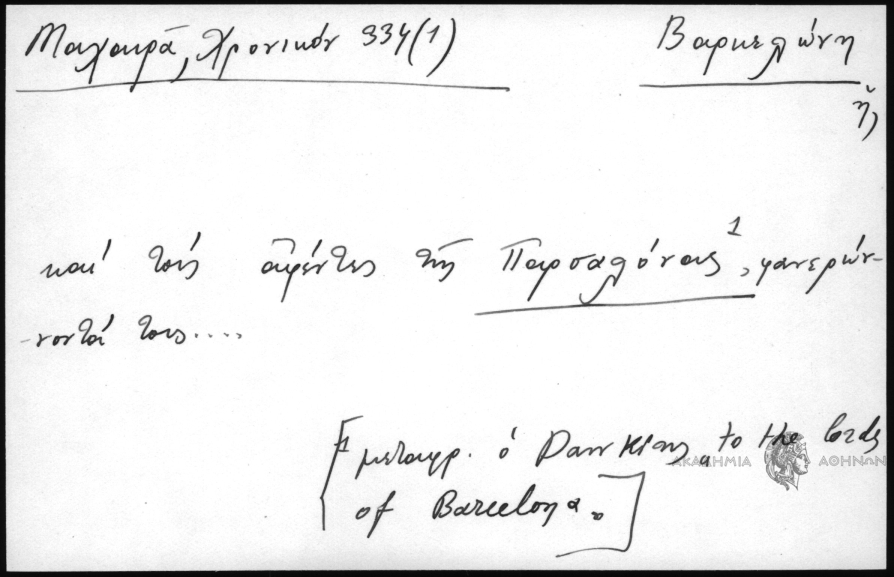 Μαχαιρᾶ, Χρονικόν 334(1) Βαρκελώνη
ἡ,
καὶ τοὺς ἀφέντες τῆς Παρσαλόνας¹, φανερών-
-νοντά τους....
[¹ μεταφρ. ὁ Dawkins „to the lords
of Barcelona"]
ΑΚΑΔΗΜΙΑ ΑΘΗΝΩΝ